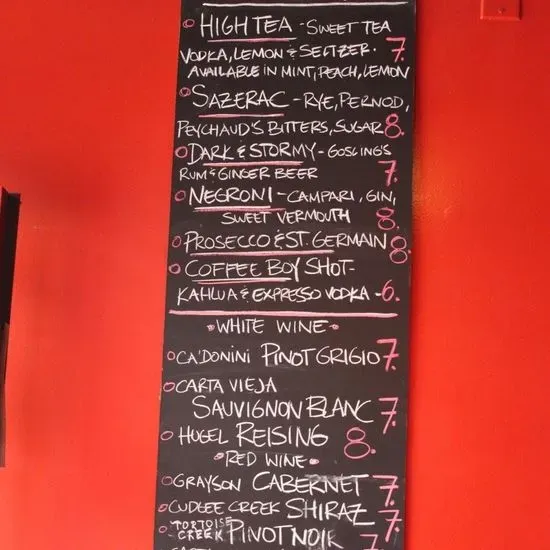 HIGH TEA - SWEET TEA
VODKA, LEMON & SELTZER. 7.
AVAILABLE IN MINT, PEACH, LEMON
SAZERAC - RYE, PERNOD,
PEYCHAUD'S BITTERS, SUGAR 8.
DARK & STORMY - GOSLING'S
RUM & GINGER BEER 7.
NEGRONI - CAMPARI, GIN,
SWEET VERMOUTH 8.
PROSECCO & ST. GERMAIN 8.
COFFEE BOY SHOT-
KAHLUA & EXPRESSO VODKA - 6.
WHITE WINE
CA'DONINI PINOT GRIGIO 7.
CARTA VIEJA
SAUVIGNON BLANC 7.
HUGEL REISING 8.
RED WINE
GRAYSON CABERNET 7.
CUDLEE CREEK SHIRAZ 7.
TORTOISE
CREEK PINOT NOIR 7